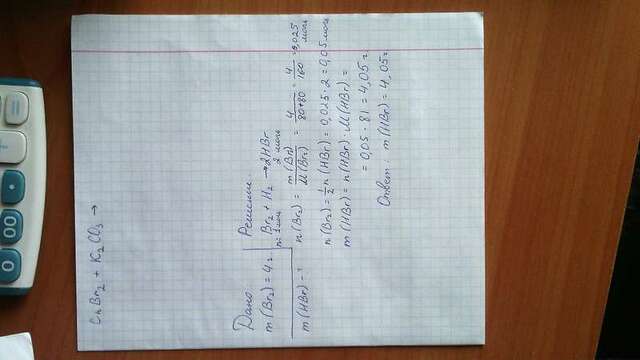 0 00 . + =
CuBr₂ + K₂CO₃ →
Дано: Решение:
m(Br₂) = 4 г. Br₂ + H₂ → 2HBr
n: 1 моль 2 моль
m(HBr) - ? n(Br₂) = m(Br₂)/M(Br₂) = 4/80+80 = 4/160 = 0,025 моль
n(Br₂) = 1/2 n(HBr) = 0,025 · 2 = 0,05 моль
m(HBr) = n(HBr) · M(HBr) =
= 0,05 · 81 = 4,05 г.
Ответ: m(HBr) = 4,05 г.